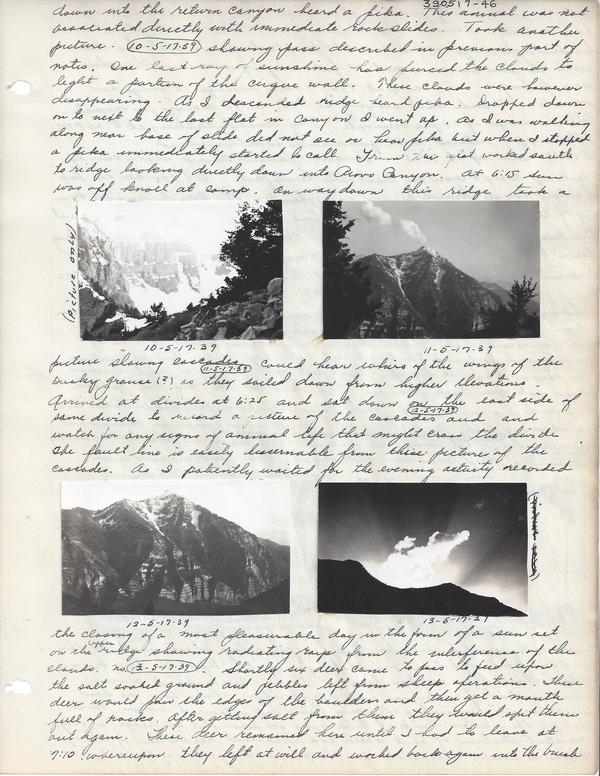 390517-46
down into the return canyon heard a pika. This animal was not
associated directly with immediate rock slides. Took another
picture. 10-5-17-39 showing pass described in previous part of
notes. One last ray of sunshine has pierced the clouds to
light a portion of the cirque wall. These clouds were however
disappearing. As I descended ridge heard pika. Dropped down
on to next to the last flat in canyon I went up. As I was walking
along near base of slide did not see or hear pika but when I stopped
a pika immediately started to call. From this worked south
to ridge looking directly down into Canyon. At 6:15 sun
was off knoll at camp. On way down this ridge took a
(Picture only)
10-5-17-39
11-5-17-39
picture slowing cascades 11-5-17-39 could hear whirs of the wings of the
Dusky grouse (?) as they sailed down from higher elevations.
Arrived at divides at 6:25 and sat down on the east side of
same divide to record a picture of the cascades 12-5-17-39 and and
watch for any signs of animal life that might cross the divide
The fault line is easily discernable from these picture of the
cascades. As I patiently waited for the evening activity recorded
12-5-17-39
13-5-17-39
the closing of a most pleasurable day in the form of a sun set
on the upper ridge showing radiating rays from the interference of the
clouds. no. 13-5-17-39. Shortly six deer came to pass to feed upon
the salt soaked ground and pebbles left from sheep operations. These
deer would paw the edges of the boulders and then get a mouth
full of rocks. After getting salt from them, they would spit them
out again. These deer remained here until I had to leave at
7:10 whereupon they left at will and worked back again into the brush